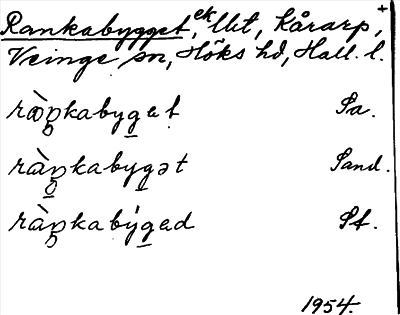 Rankabygget, ek llet, Kårarp, +
Veinge sn, Höks hd, Hall. l.
ràŋkabyget Sa.
ràŋkabygət Sand.
ràŋkabýged St.
1954.